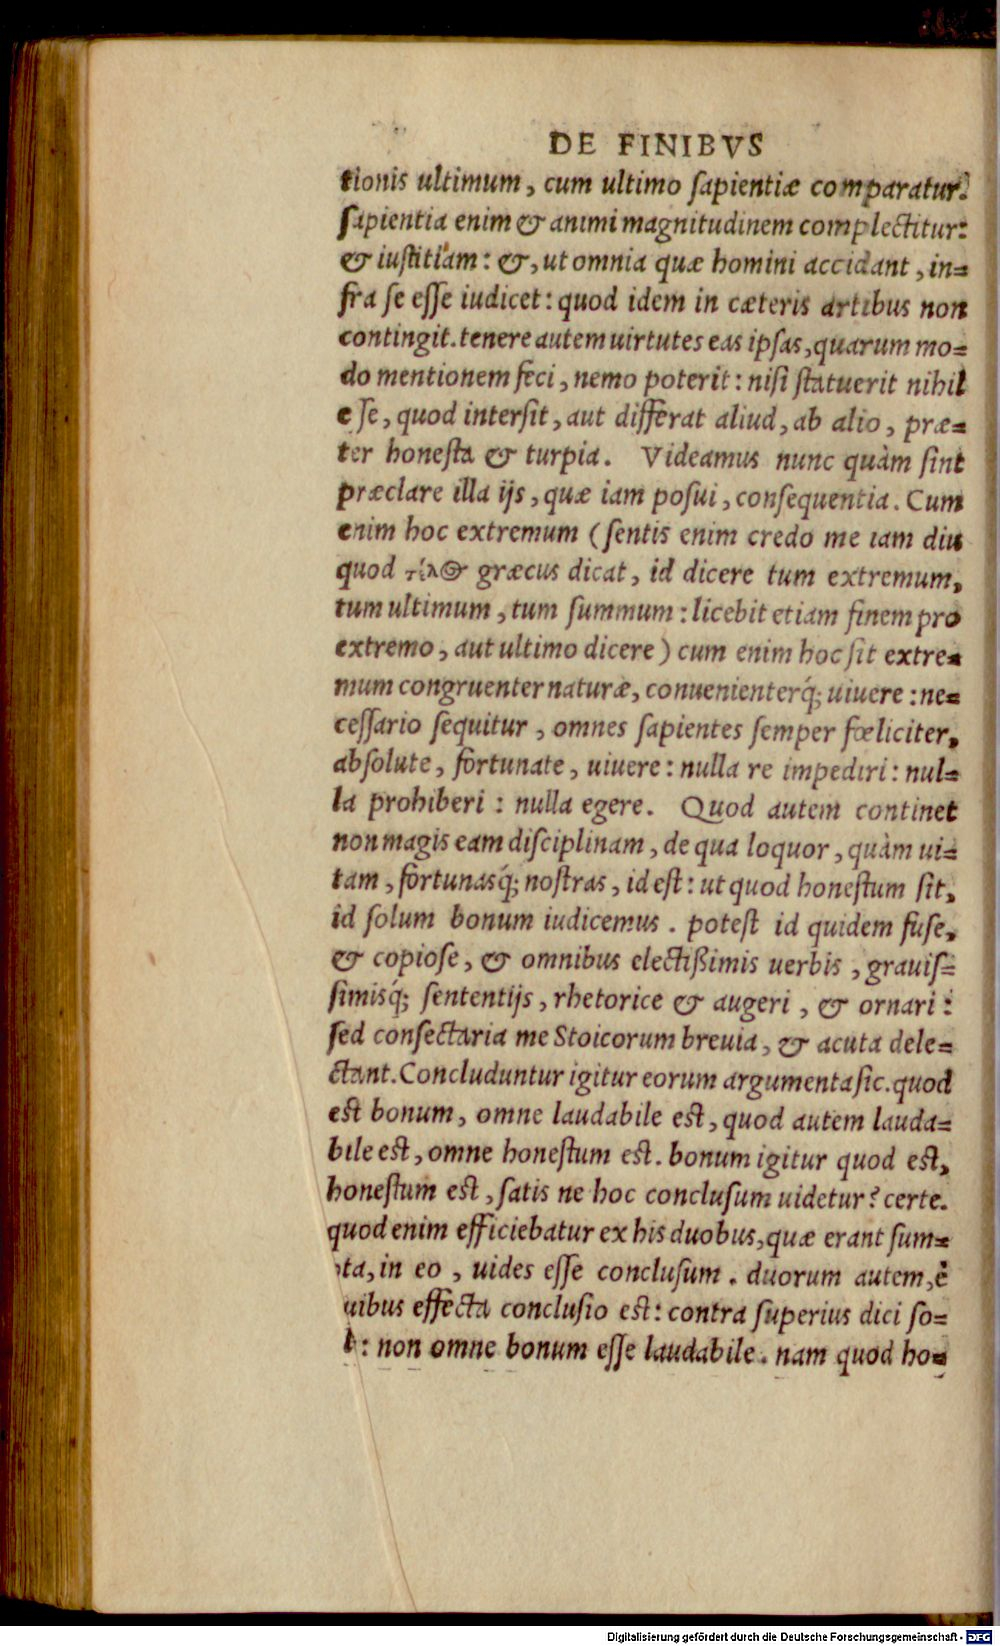 DE FINIBVS
tionis ultimum, cum ultimo ſapientiæ comparatur.
ſapientia enim & animi magnitudinem complectitur:
& iuſtitiam: &, ut omnia quæ homini accidant, in=
fra ſe eſſe iudicet: quod idem in cæteris artibus non
contingit. tenere autem uirtutes eas ipſas, quarum mo=
do mentionem feci, nemo poterit: niſi ſtatuerit nihil
eſſe, quod interſit, aut differat aliud, ab alio, præ=
ter honeſta & turpia. Videamus nunc quàm ſint
præclare illa ijs, quæ iam poſui, conſequentia. Cum
enim hoc extremum (ſentis enim credo me iam diu
quod τέλος græcus dicat, id dicere tum extremum,
tum ultimum, tum ſummum: licebit etiam finem pro
extremo, aut ultimo dicere) cum enim hoc ſit extre=
mum congruenter naturæ, conuenienterq́; uiuere: ne=
ceſſario ſequitur, omnes ſapientes ſemper fœliciter,
abſolute, fortunate, uiuere: nulla re impediri: nul=
la prohiberi: nulla egere. Quod autem continet
non magis eam diſciplinam, de qua loquor, quàm ui=
tam, fortunasq́; noſtras, id eſt: ut quod honeſtum ſit,
id ſolum bonum iudicemus. poteſt id quidem fuſe,
& copioſe, & omnibus electißimis uerbis, grauiſ=
ſimisq́; ſententijs, rhetorice & augeri, & ornari:
ſed conſectaria me Stoicorum breuia, & acuta dele=
ctant. Concluduntur igitur eorum argumenta ſic. quod
eſt bonum, omne laudabile eſt, quod autem lauda=
bile eſt, omne honeſtum eſt. bonum igitur quod eſt,
honeſtum eſt, ſatis ne hoc concluſum uidetur? certe.
quod enim efficiebatur ex his duobus, quæ erant ſum=
pta, in eo, uides eſſe concluſum. duorum autem, è
uibus effecta concluſio eſt: contra ſuperius dici ſo=
: non omne bonum eſſe laudabile. nam quod ho=
Digitalisierung gefördert durch die Deutsche Forschungsgemeinschaft - DFG